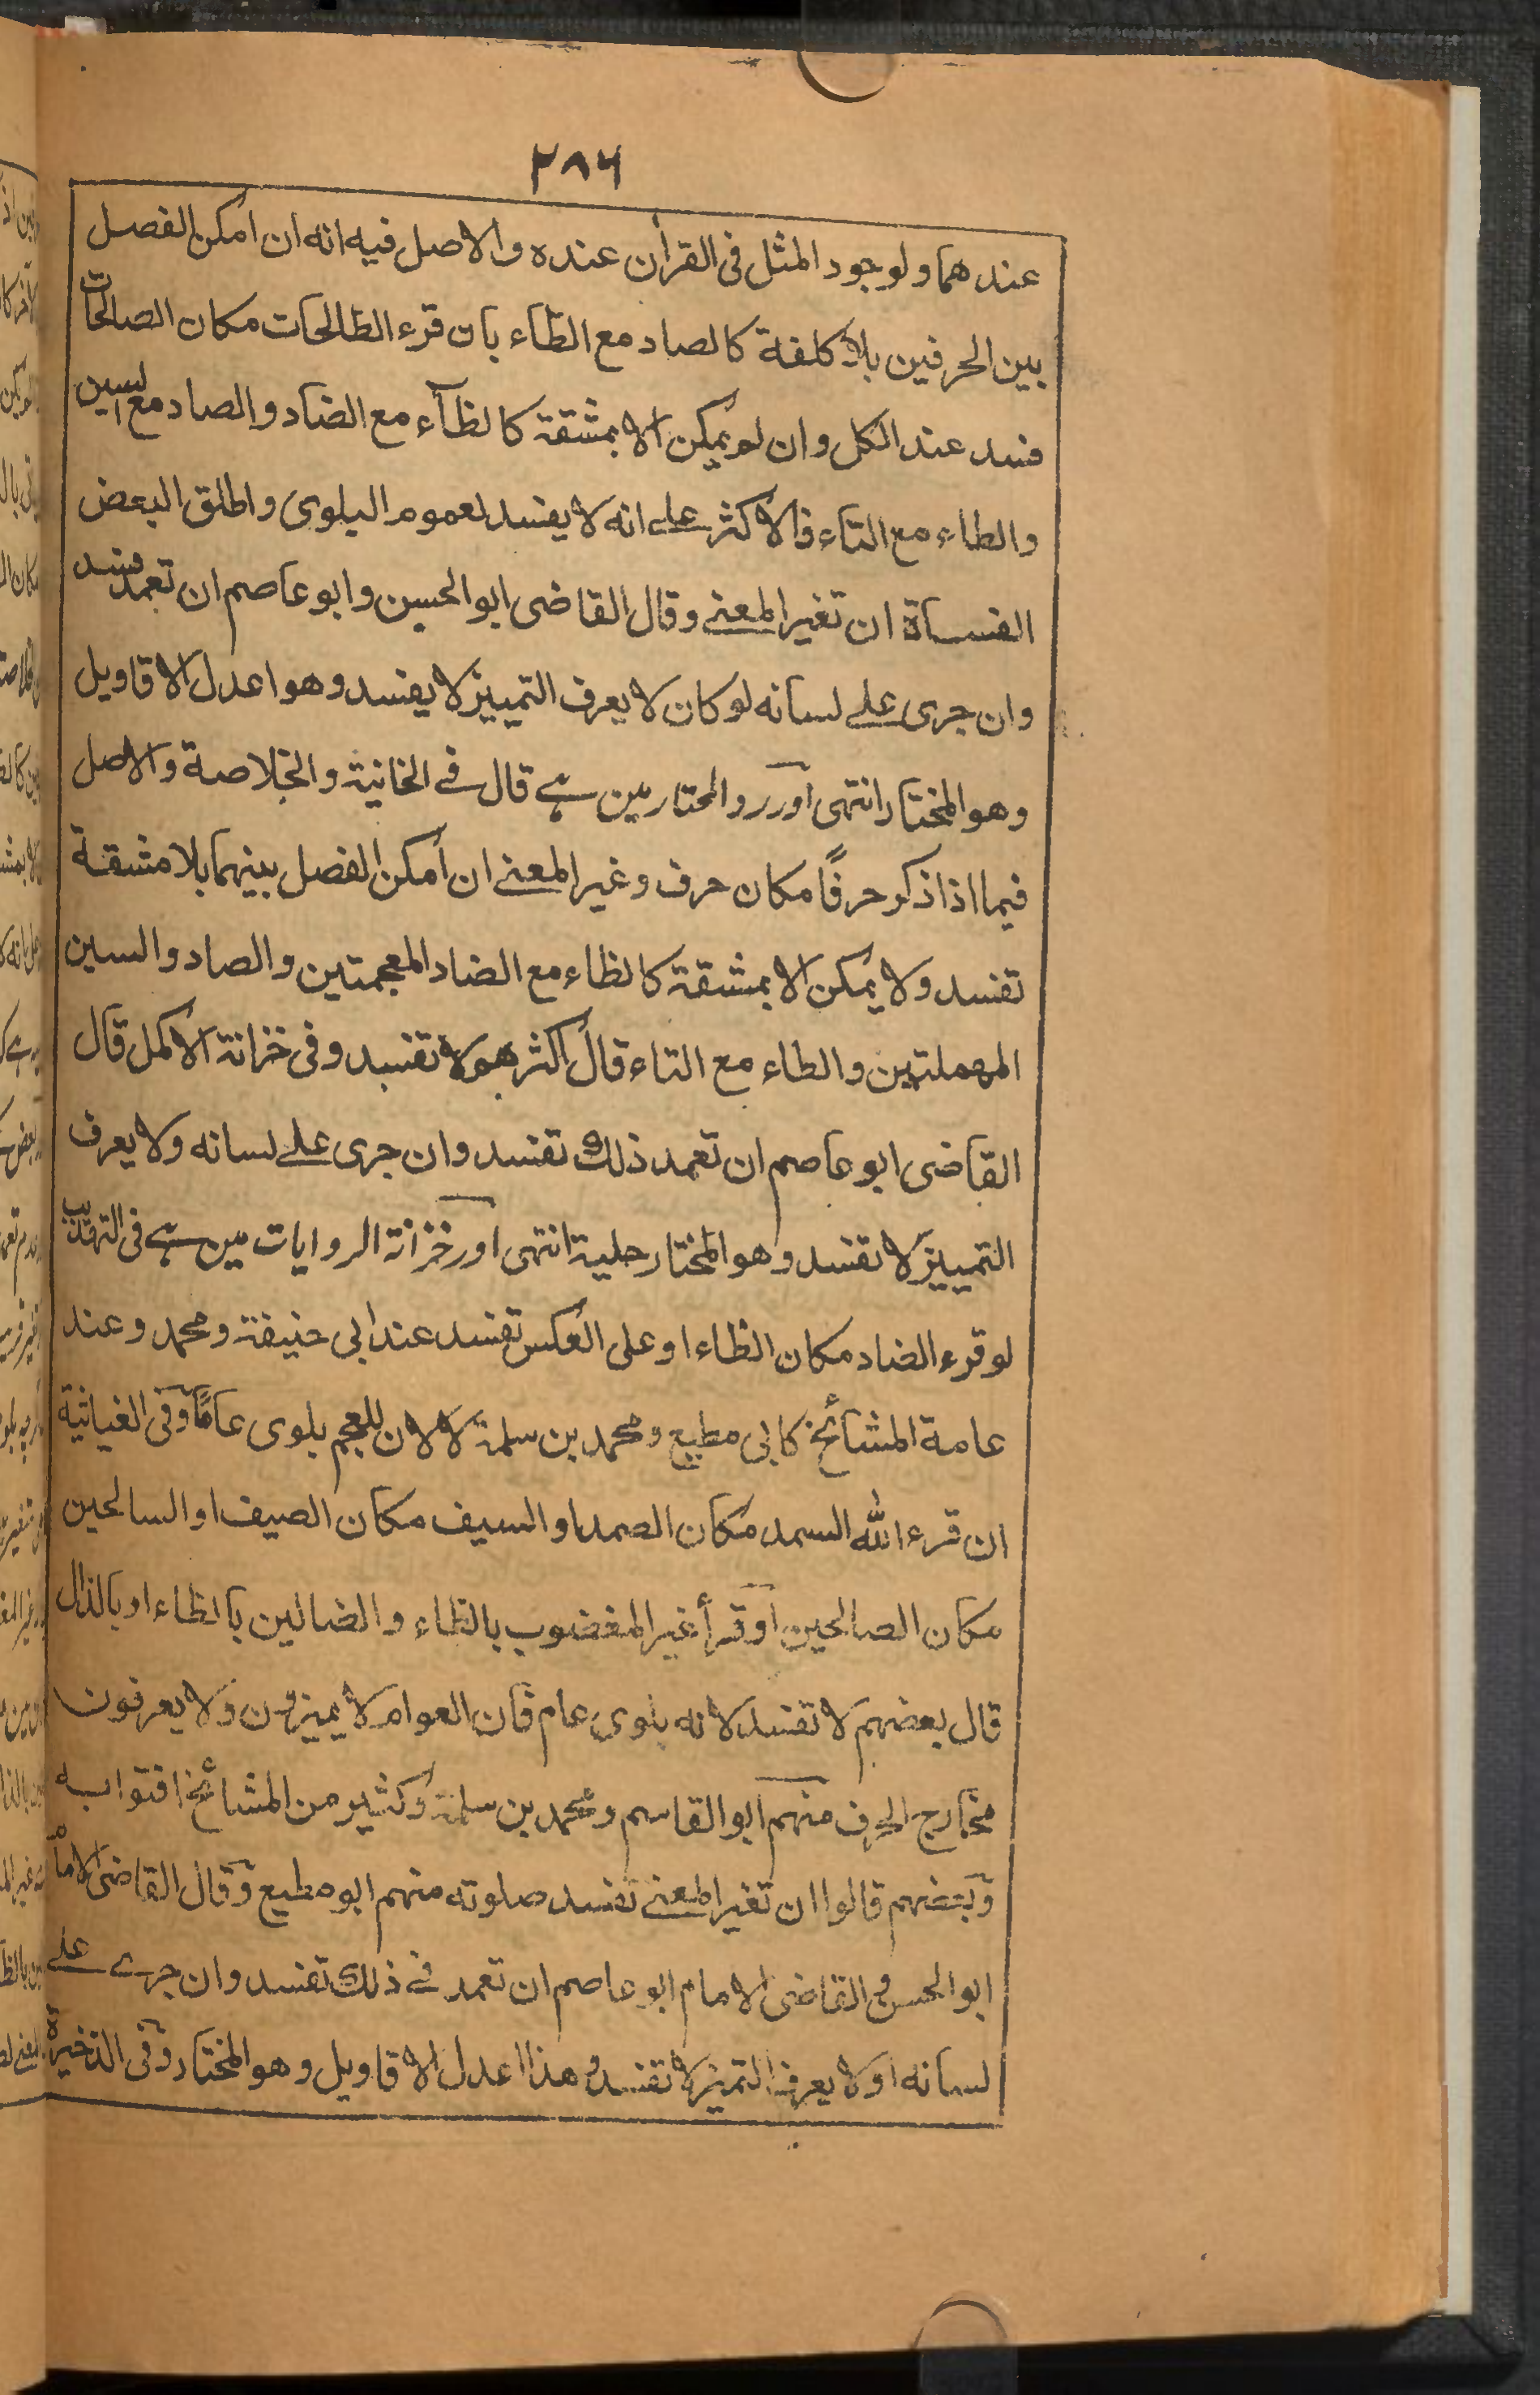 ٢٨٦
عندهما ولوجود المثل فى القرأن عنده والاصل فيه انه ان امكن الفصل
بين الحرفين بلا كلفة كالصاد مع الطاء بان قرء الطالحات مكان الصالحات
فسد عند الكل وان لم يمكن الا بمشقة كالظآء مع الضاد والصاد مع السين
والطاء مع التاء فالاكثر علے انه لا يفسد لعموم البلوى واطلق البعض
الفساة ان تغير المعنے وقال القاضى ابو الحسين وابو عاصم ان تعمد فسد
وان جرى علے لسانه لو كان لا يعرف التمييز لا يفسد وهو اعدل الاقاويل
وهو المختار انتهى اور رد المحتار مين ہے قال فے الخانية والخلاصة والاصل
فيما اذا ذكر حرفًا مكان حرف وغير المعنے ان امكن الفصل بينهما بلا مشقة
تفسد ولا يمكن الا بمشقة كالظاء مع الضاد المعجمتين والصاد والسين
المهملتين والطاء مع التاء قال اكثرهم لا تفسد وفى خزانة الاكمل قال
القاضى ابو عاصم ان تعمد ذلك تفسد وان جرى علے لسانه ولا يعرف
التمييز لا تفسد وهو المختار حلية انتهى اور خزانة الروايات مين ہے فى التهذيب
لو قرء الضاد مكان الظاء او على العكس تفسد عند ابى حنيفة ومحمد وعند
عامة المشائخ كابى مطيع ومحمد بن سلمة لا لان للعجم بلوى عامًا وفى الغياثية
ان قرء الله السمد مكان الصمد او السيف مكان الصيف او السالحين
مكان الصالحين او قرأ غير المغضوب بالظاء والضالين بالظاء او بالذال
قال بعضهم لا تفسد لانه بلوى عام فان العوام لا يميزون ولا يعرفون
مخارج الحرف منهم ابو القاسم ومحمد بن سلمة وكثير من المشائخ افتوا به
وبعضهم قالوا ان تغير المعنے تفسد صلوته منهم ابو مطيع وقال القاضى الامام
ابو الحسن و القاضى الامام ابو عاصم ان تعمد فے ذلك تفسد وان جرے علے
لسانه او لا يعرف التميز لا تفسد و هذا اعدل الاقاويل وهو المختار وفى الذخيرة